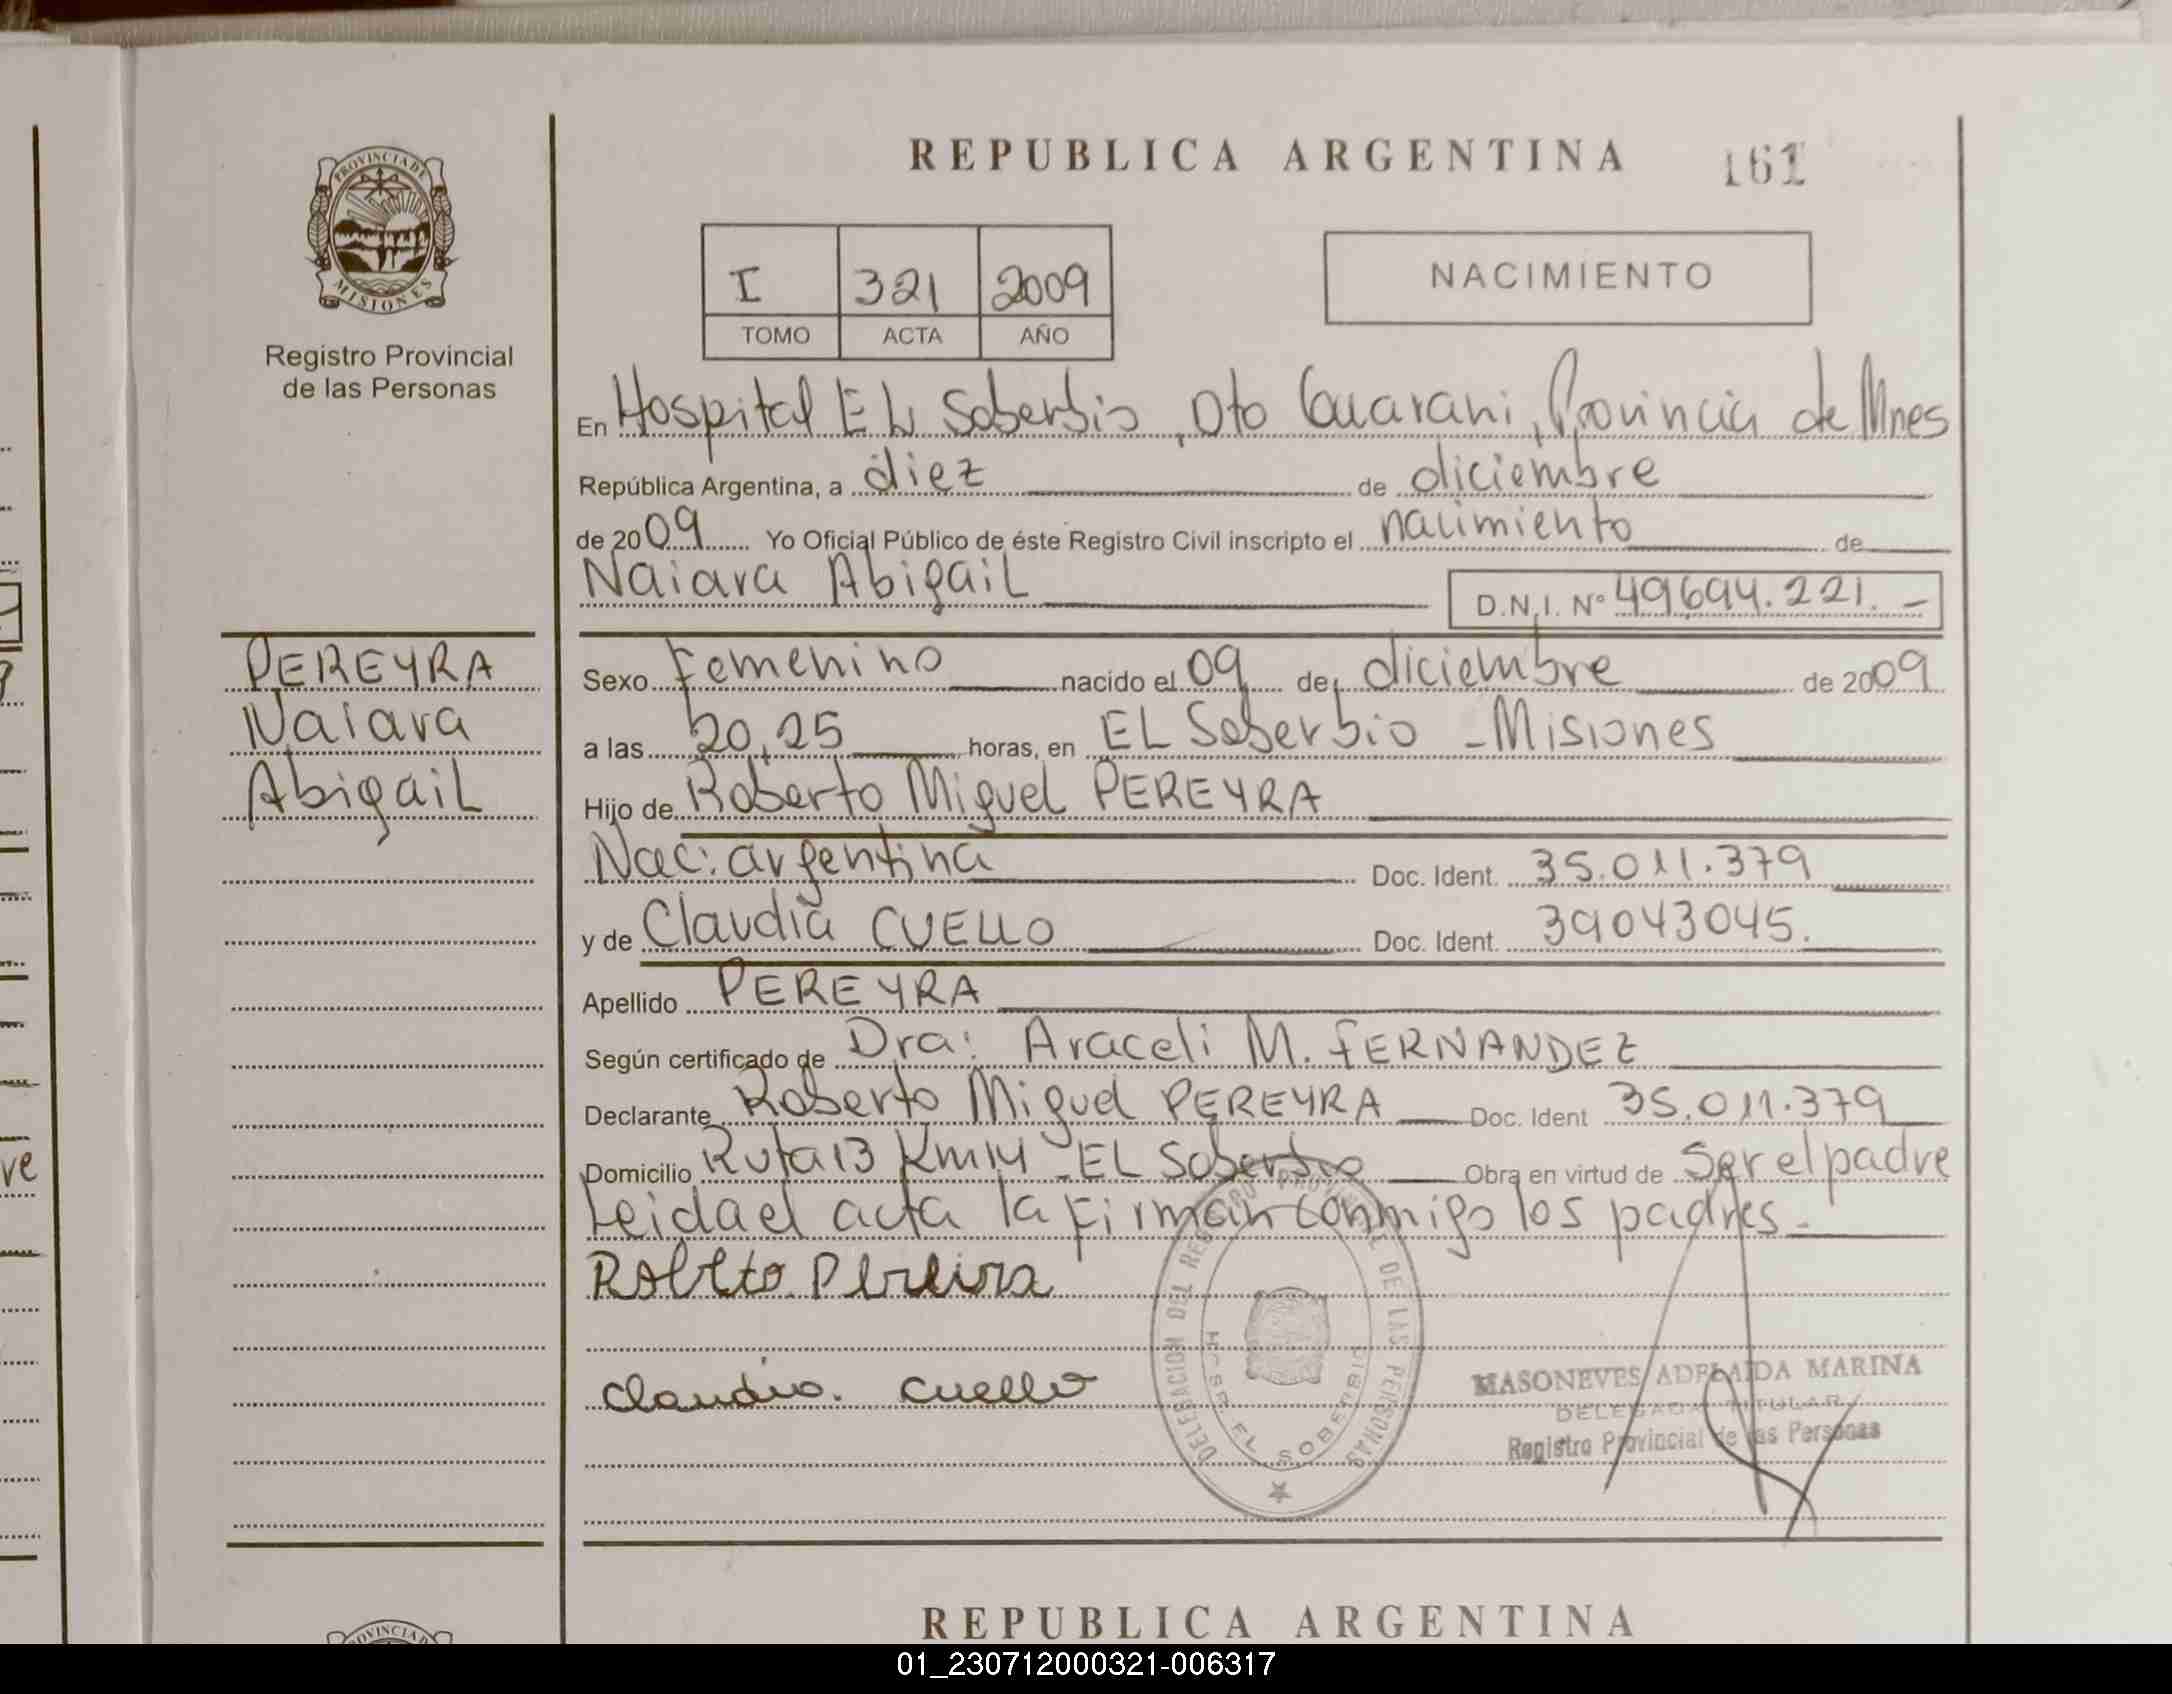 REPUBLICA ARGENTINA 161
PROVINCIA DE
MISIONES
Registro Provincial
de las Personas
I 321 2009
TOMO ACTA AÑO
NACIMIENTO
En Hospital EL Soberbio, Dto Guarani, Provincia de Mnes
República Argentina, a diez de diciembre
de 2009 Yo Oficial Público de éste Registro Civil inscripto el nacimiento de
Naiara Abigail D.N.I. Nº 49694.221.-
PEREYRA
Naiara
Abigail
Sexo Femenino nacido el 09 de diciembre de 2009
a las 20,25 horas, en EL Soberbio - Misiones
Hijo de Roberto Miguel PEREYRA
Nac: argentina Doc. Ident. 35.011.379
y de Claudia CUELLO Doc. Ident. 39043045.
Apellido PEREYRA
Según certificado de Dra: Araceli M. FERNANDEZ
Declarante Roberto Miguel PEREYRA Doc. Ident 35.011.379
Domicilio Ruta 13 Km 14 - EL Soberbio Obra en virtud de Ser el padre
Leida el acta la firman conmigo los padres -
Roberto Pereira
Claudia. Cuello
DELEGACION DEL REGISTRO PROVINCIAL DE LAS PERSONAS
EL SOBERBIO
MASONEVES ADELAIDA MARINA
DELEGADA TITULAR
Registro Provincial de las Personas
REPUBLICA ARGENTINA
PROVINCIA D
01_230712000321-006317